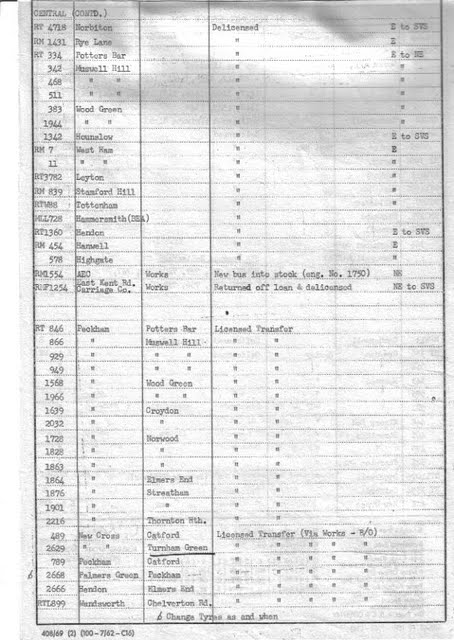 CENTRAL (CONTD.)
RT 4718 Norbiton Delicensed E to SVS
RM 1431 Rye Lane " E
RT 334 Potters Bar " E to NE
342 Muswell Hill " "
468 " " " "
511 " " " "
383 Wood Green " "
1944 " " " "
1342 Hounslow " E to SVS
RM 7 West Ham " E
11 " " " "
RT3782 Leyton " "
RM 839 Stamford Hill " "
RTW88 Tottenham " "
MLL728 Hammersmith(BEA) "
RT1360 Hendon " E to SVS
RM 454 Hanwell " E
578 Highgate " "
RM1554 AEC Works New bus into stock (eng. No. 1750) NE
RMF1254 East Kent Rd. Carriage Co. Works Returned off loan & delicensed NE to SVS
RT 846 Peckham Potters Bar Licensed Transfer
866 " Muswell Hill " "
929 " " " " "
949 " " " " "
1568 " Wood Green " "
1966 " " " " "
1639 " Croydon " "
2032 " " " "
1728 " Norwood " "
1828 " " " "
1863 " " " "
1864 " Elmers End " "
1876 " Streatham " "
1901 " " " "
2216 " Thornton Hth. " "
489 New Cross Catford Licensed Transfer (Via Works - B/O)
2629 " " Turnham Green " " " " "
789 Peckham Catford " " " " "
6 2668 Palmers Green Peckham " " " " "
2666 Hendon Elmers End " " " " "
RTL899 Wandsworth Chelverton Rd. " " " " "
6 Change Tyres as and when
408/69 (2) (100-7/62-C16)